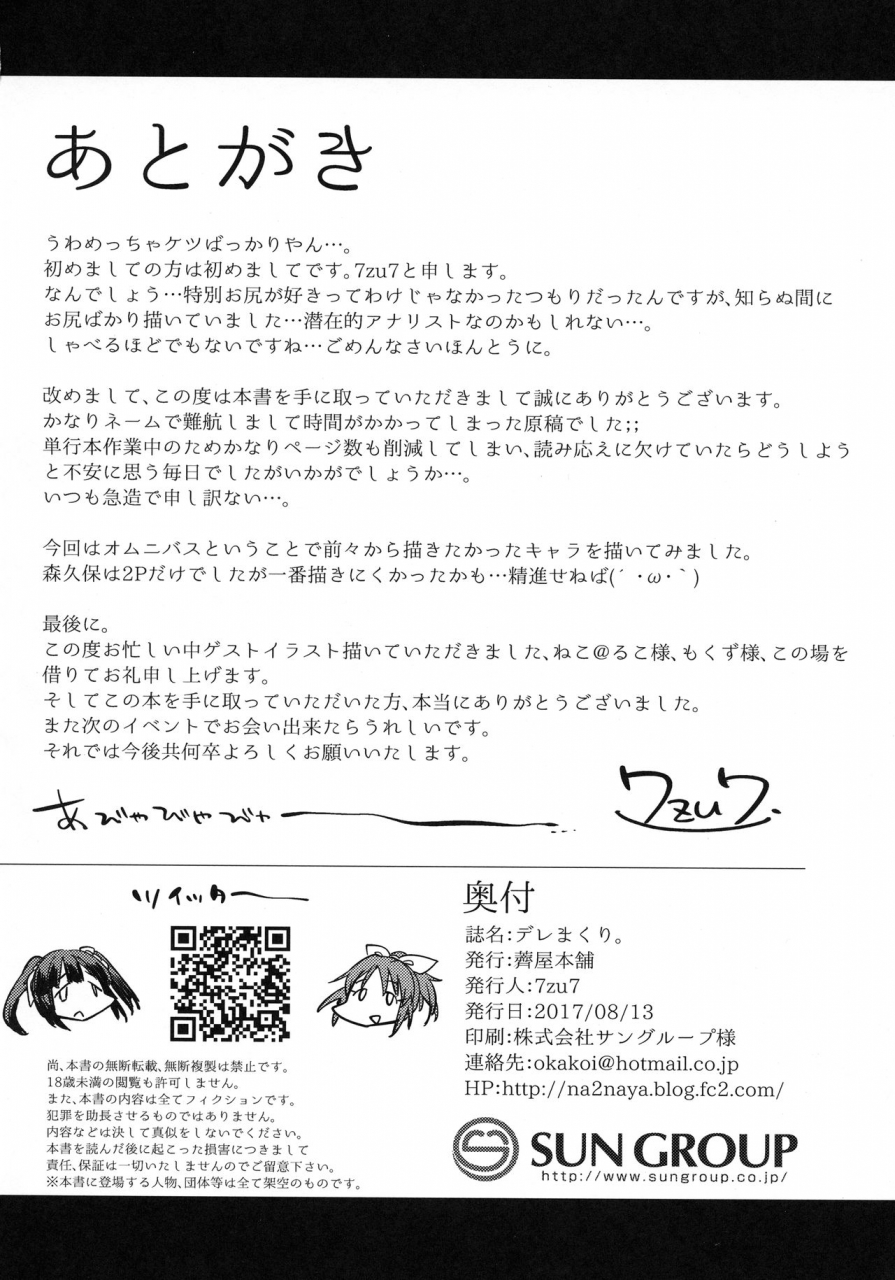 あとがき
うわめっちゃケツばっかりやん…。
初めましての方は初めましてです。7zu7と申します。
なんでしょう…特別お尻が好きってわけじゃなかったつもりだったんですが、知らぬ間に
お尻ばかり描いていました…潜在的アナリストなのかもしれない…。
しゃべるほどでもないですね…ごめんなさいほんとうに。
改めまして、この度は本書を手に取っていただきまして誠にありがとうございます。
かなりネームで難航しまして時間がかかってしまった原稿でした;;
単行本作業中のためかなりページ数も削減してしまい、読み応えに欠けていたらどうしよう
と不安に思う毎日でしたがいかがでしょうか…。
いつも急造で申し訳ない…。
今回はオムニバスということで前々から描きたかったキャラを描いてみました。
森久保は2Pだけでしたが一番描きにくかったかも…精進せねば(´・ω・｀)
最後に。
この度お忙しい中ゲストイラスト描いていただきました、ねこ@るこ様、もくず様、この場を
借りてお礼申し上げます。
そしてこの本を手に取っていただいた方、本当にありがとうございました。
また次のイベントでお会い出来たらうれしいです。
それでは今後共何卒よろしくお願いいたします。
あびゃびゃびゃー
7zu7.
ツイッター
尚、本書の無断転載、無断複製は禁止です。
18歳未満の閲覧も許可しません。
また、本書の内容は全てフィクションです。
犯罪を助長させるものではありません。
内容などは決して真似をしないでください。
本書を読んだ後に起こった損害につきまして
責任、保証は一切いたしませんのでご留意下さい。
※本書に登場する人物、団体等は全て架空のものです。
奥付
誌名：デレまくり。
発行：薺屋本舗
発行人：7zu7
発行日：2017/08/13
印刷：株式会社サングループ様
連絡先：okakoi@hotmail.co.jp
HP：http://na2naya.blog.fc2.com/
SUN GROUP
http://www.sungroup.co.jp/